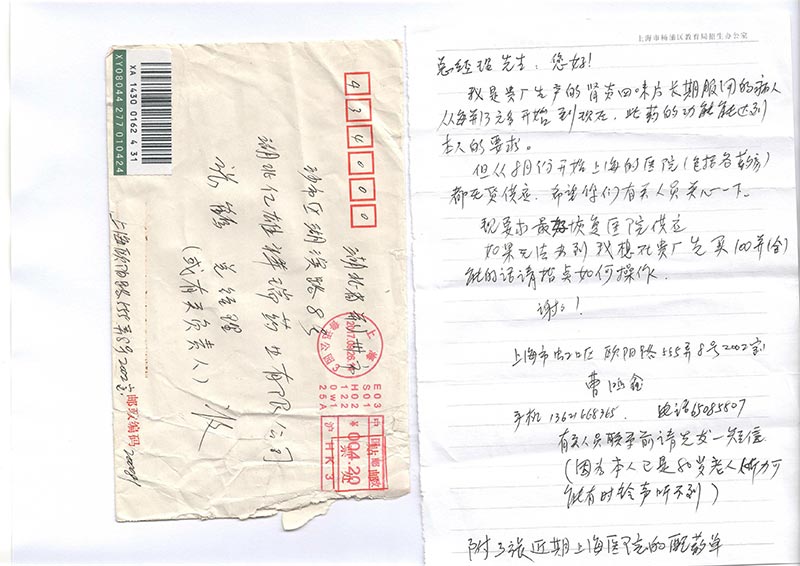 XA 1430 0162 4 31
XY08044 277 010424
434000
湖北省荆州市
沙市区湖滨路8号
湖北亿雄祥瑞药业有限公司
总经理
(或有关负责人) 收
上海欧阳路555弄8号2002室
邮政编码 200081
上海
2017.09.26
E03
S01
H02
122
0w1
25A
中国邮政
¥004.20
沪HK3
上海市杨浦区教育局招生办公室
总经理先生:您好!
我是贵厂生产的肾炎四味片长期服用的病人
从每并13元多开始到现在,此药的功能能达到
本人的要求。
但从8月份开始上海的医院(包括各药房)
都无货供应,希望你们有关人员关心一下。
现要求最好恢复医院供应
如果无法办到我想在贵厂先买100并(盒)
能的话请指点如何操作.
谢谢!
上海市虹口区欧阳路555弄8号2002室
曹鸿鑫
手机13621668365. 电话65085807
有关人员联系前请先发一短信
(因为本人已是80岁老人听力可
能有时铃声听不到)
附3张近期上海医院的配药单